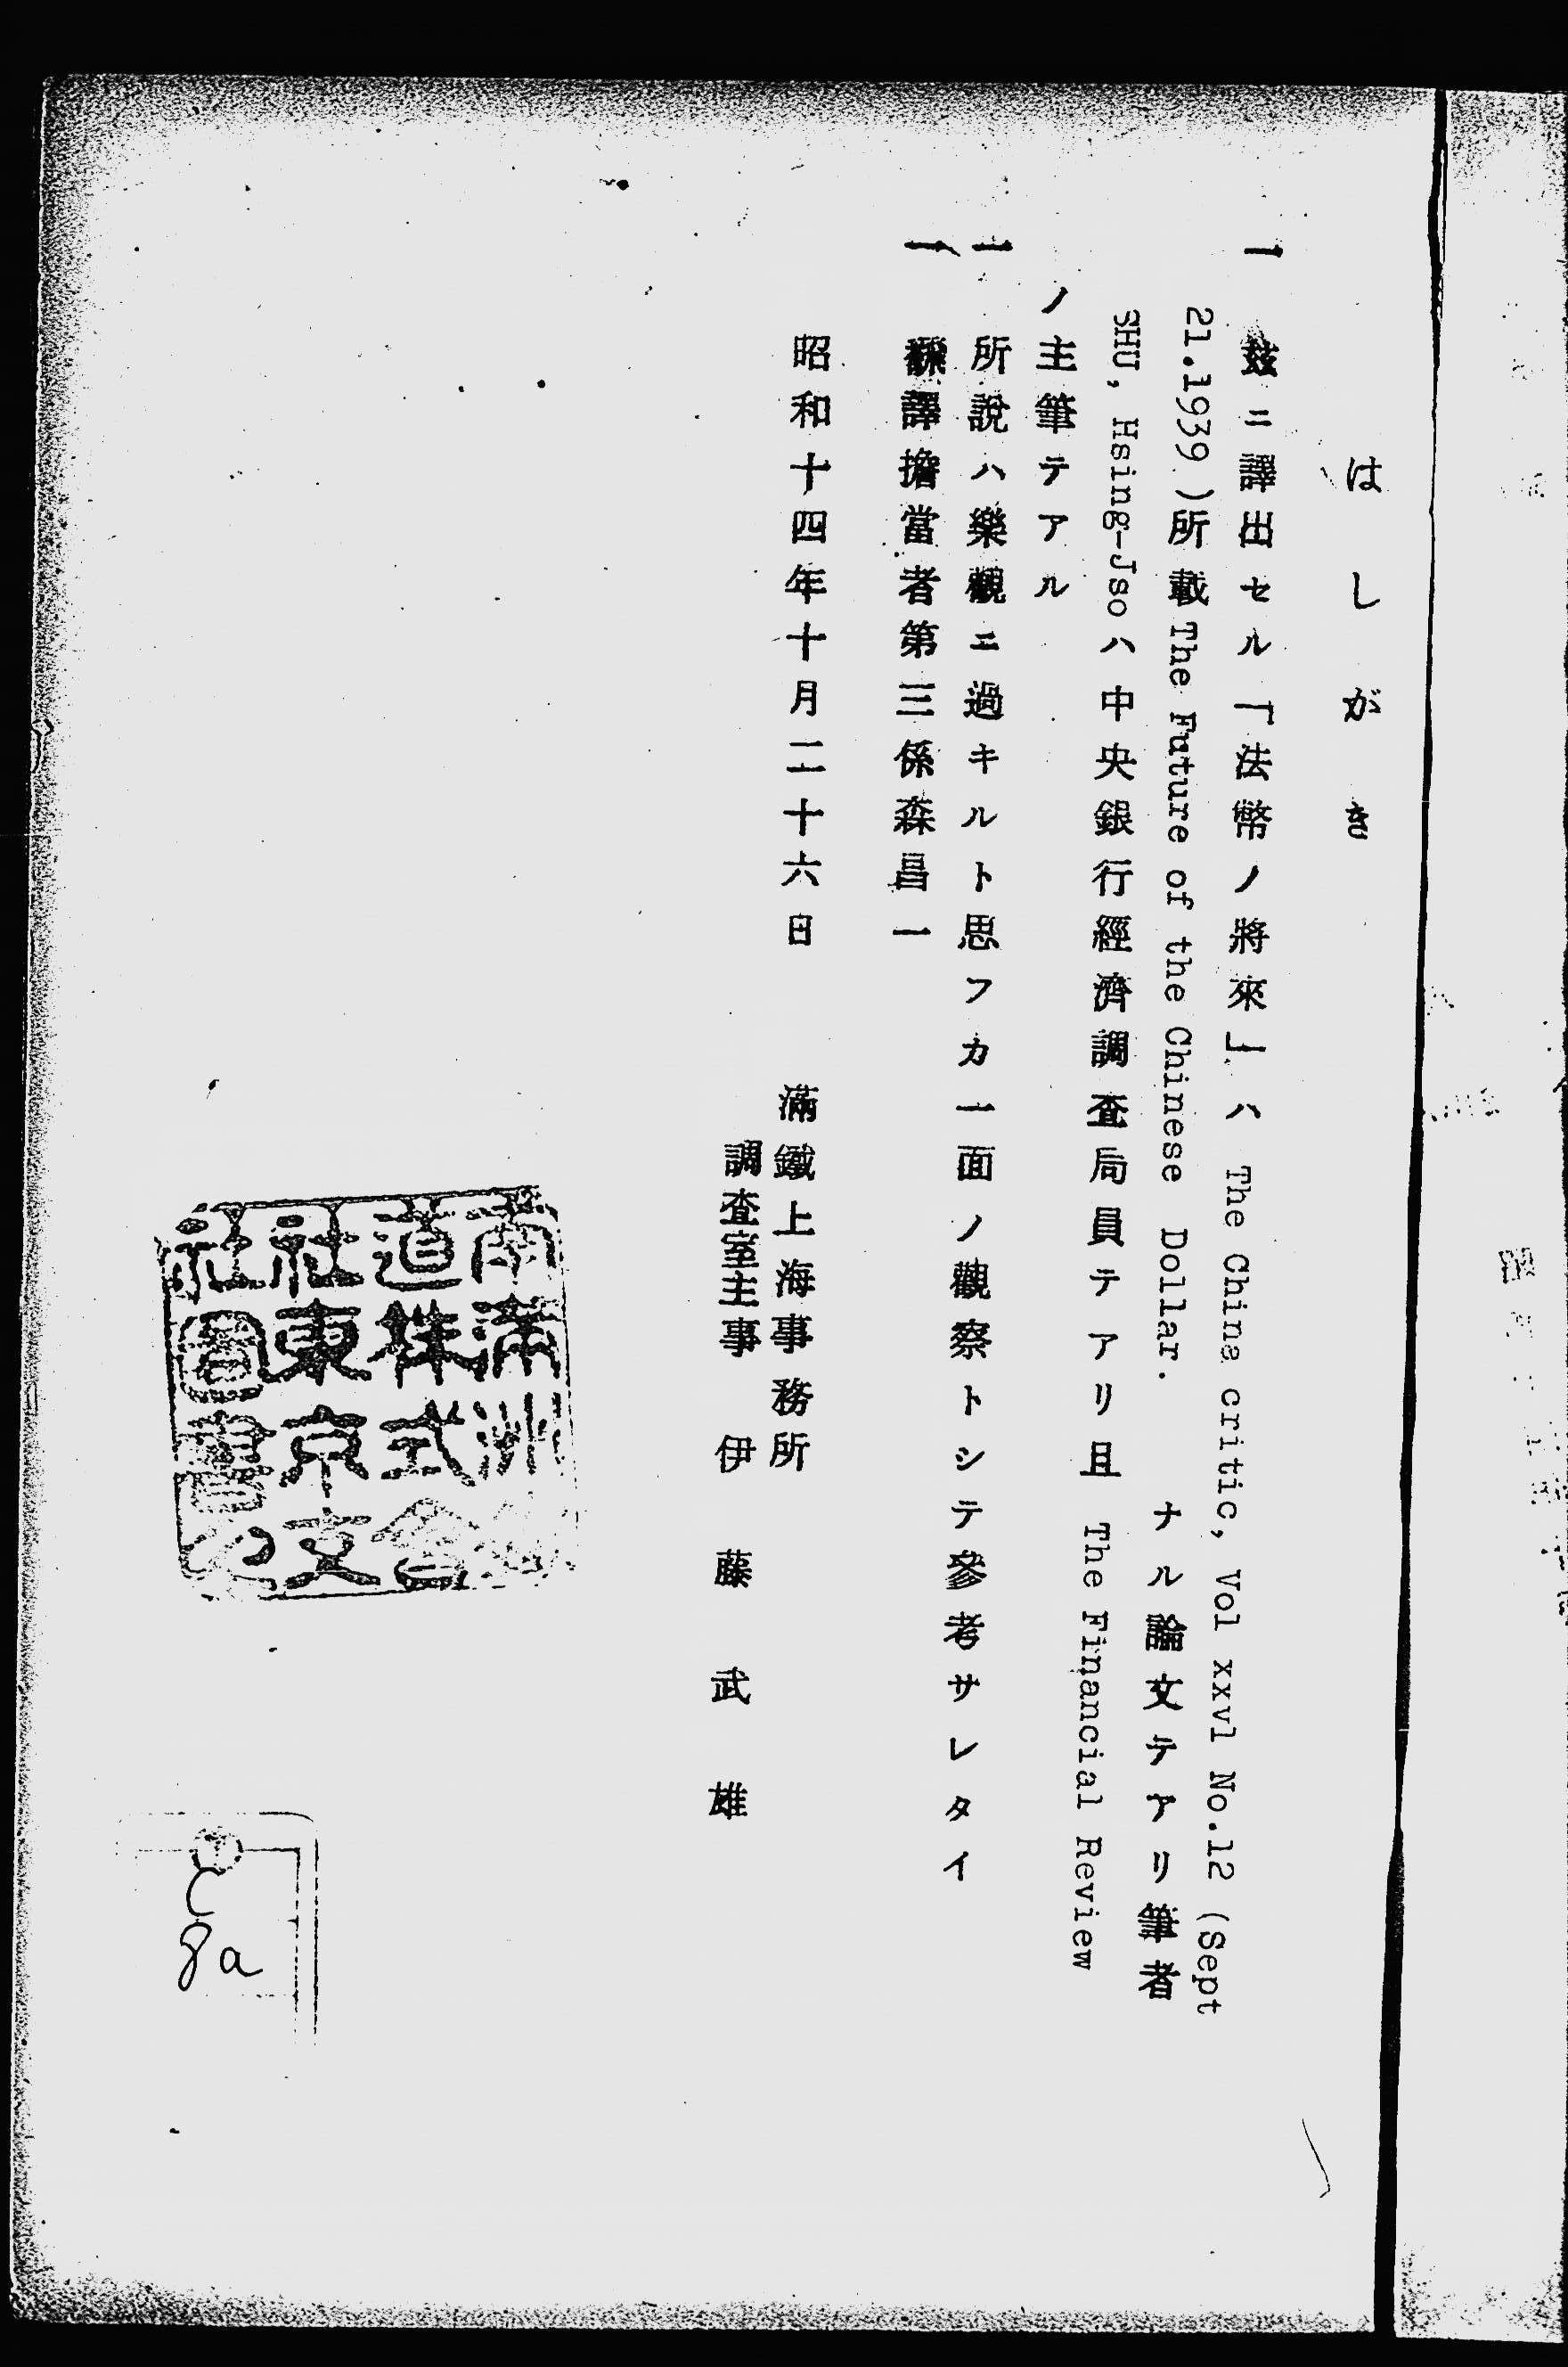 はしがき
一 茲ニ譯出セル「法幣ノ將來」ハ The China critic, Vol xxvl No.12 (Sept
21.1939)所載 The Future of the Chinese Dollar. ナル論文テアリ筆者
SHU, Hsing-Jso ハ中央銀行經濟調査局員テアリ且 The Financial Review
ノ主筆テアル
一 所說ハ樂觀ニ過キルト思フカ一面ノ觀察トシテ參考サレタイ
一 飜譯擔當者第三係森昌一
昭和十四年十月二十六日
滿鐵上海事務所
調査室主事 伊藤武雄
南滿洲鐵
道株式會
社東京支
社圖書印
C
8a